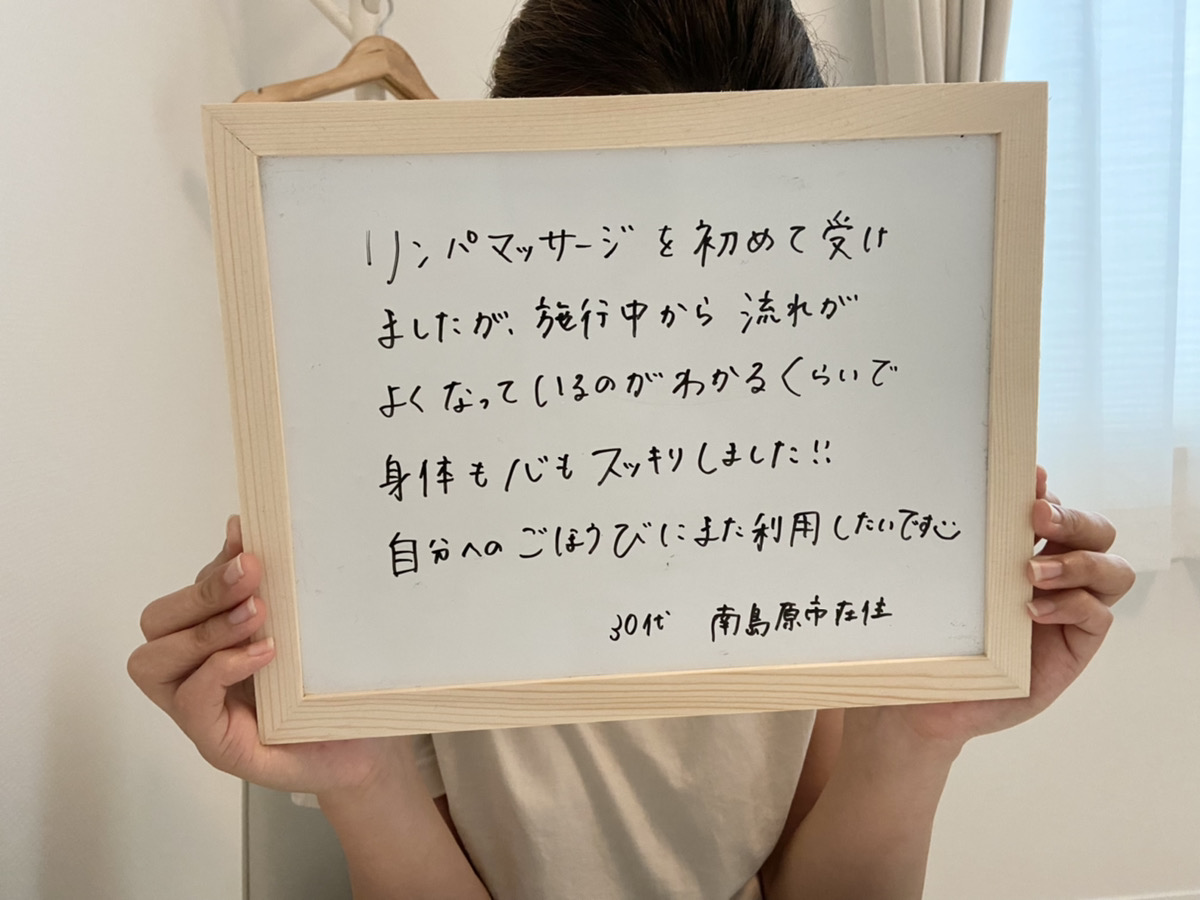 リンパマッサージを初めて受け
ましたが、施行中から流れが
よくなっているのがわかるくらいで
身体も心もスッキリしました!!
自分へのごほうびにまた利用したいです
30代 南島原市在住